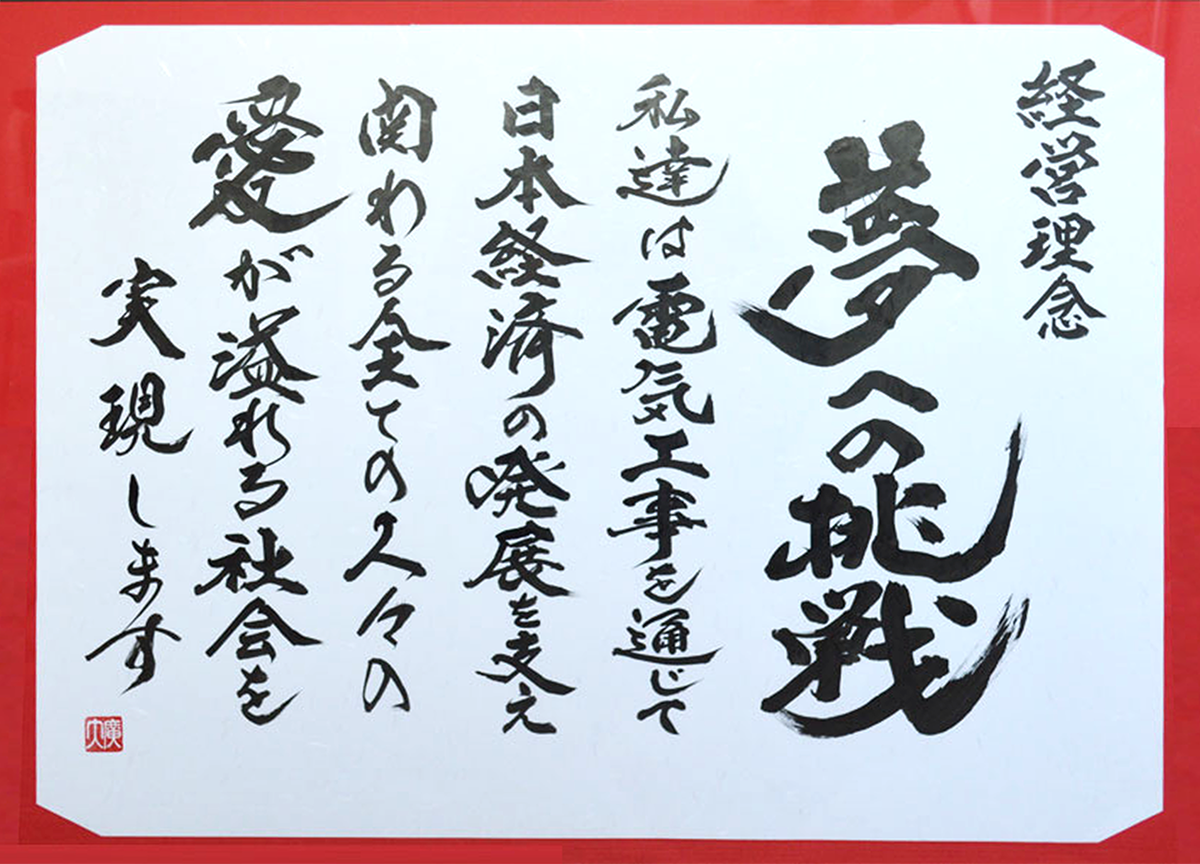 経営理念
夢への挑戦
私達は電気工事を通じて
日本経済の発展を支え
関わる全ての人々の
愛が溢れる社会を
実現します
廣大